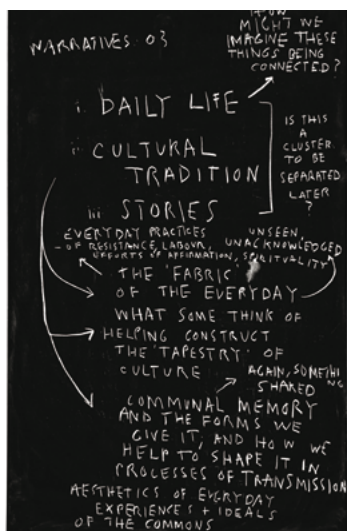 NARRATIVES 03
HOW
MIGHT WE
IMAGINE THESE
THINGS BEING
CONNECTED?
i. DAILY LIFE
ii CULTURAL
TRADITION
iii STORIES
IS THIS
A
CLUSTER
TO BE
SEPARATED
LATER
?
EVERYDAY PRACTICES
– OF RESISTANCE, LABOUR,
EFFORTS OF AFFIRMATION, SPIRITUALITY
UNSEEN,
UNACKNOWLEDGED
THE 'FABRIC'
OF THE EVERYDAY
WHAT SOME THINK OF
HELPING CONSTRUCT
THE 'TAPESTRY' OF
CULTURE
AGAIN, SOMETHING
SHARED
COMMUNAL MEMORY
AND THE FORMS WE
GIVE IT, AND HOW WE
HELP TO SHAPE IT IN
PROCESSES OF TRANSMISSION
AESTHETICS OF EVERYDAY
EXPERIENCES + IDEALS
OF THE COMMONS